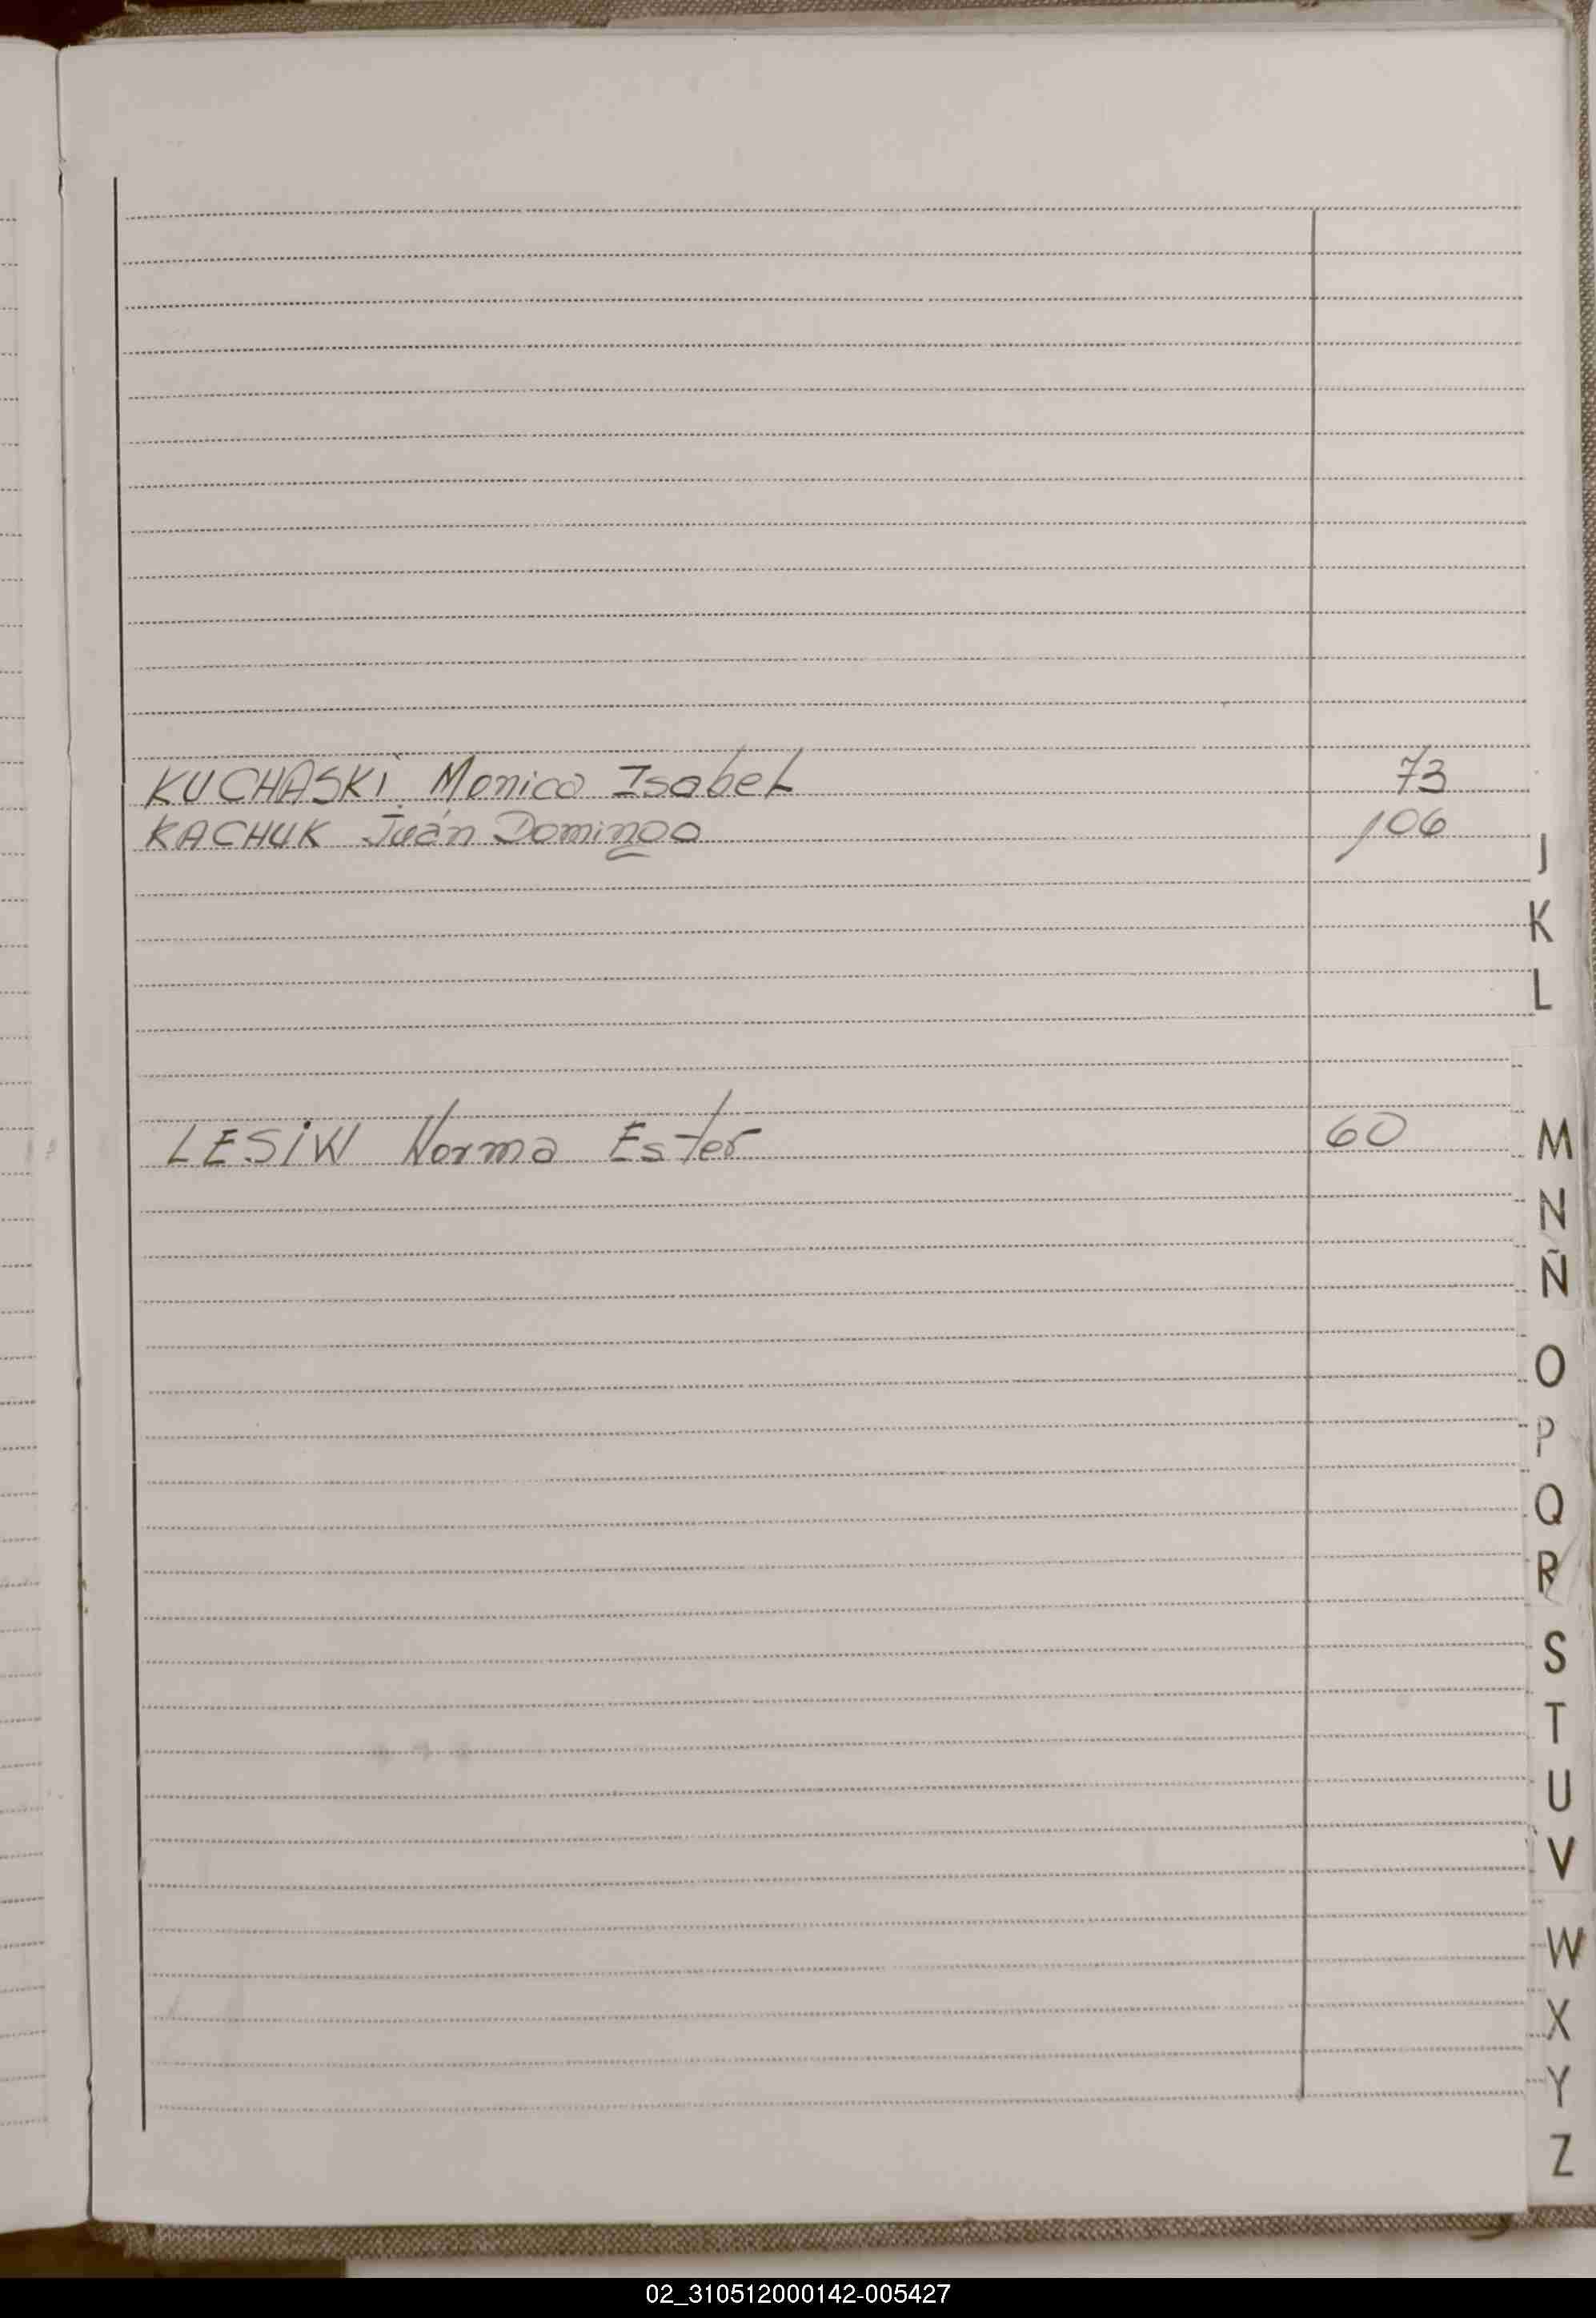 KUCHASKI Monica Isabel 73
KACHUK Juán Domingo 106
J
K
L
LESIW Norma Ester 60
M
N
Ñ
O
P
Q
R
S
T
U
V
W
X
Y
Z
02_310512000142-005427